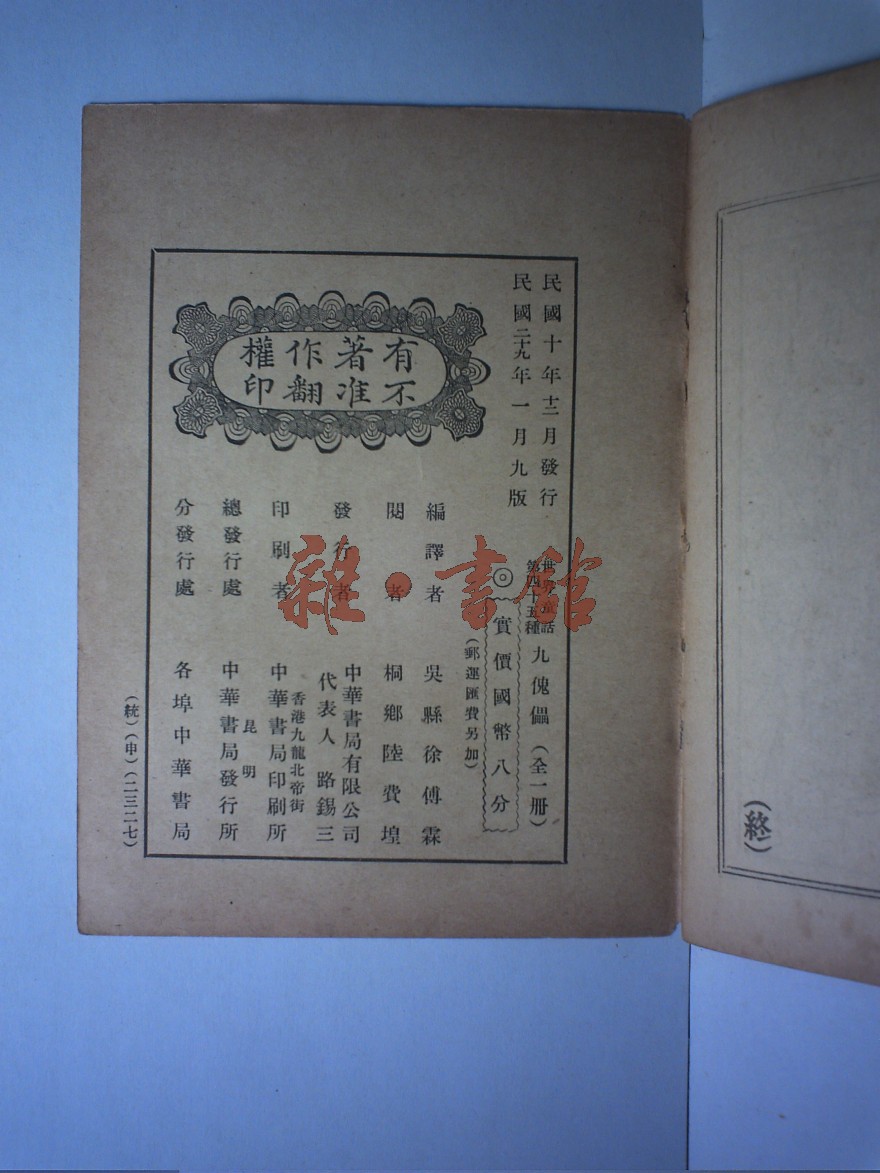 民國十年十二月發行
民國二十九年一月九版
世界童話
第四十五種
九傀儡(全一册)
◎實價國幣八分
(郵運匯費另加)
有著作權
不准翻印
編譯者 吳縣徐傅霖
閱者 桐鄉陸費堭
發行者 中華書局有限公司
代表人 路錫三
印刷者 香港九龍北帝街
中華書局印刷所
總發行處 昆明
中華書局發行所
分發行處 各埠中華書局
(統)(申)(二三二七)
(終)
雜·書館